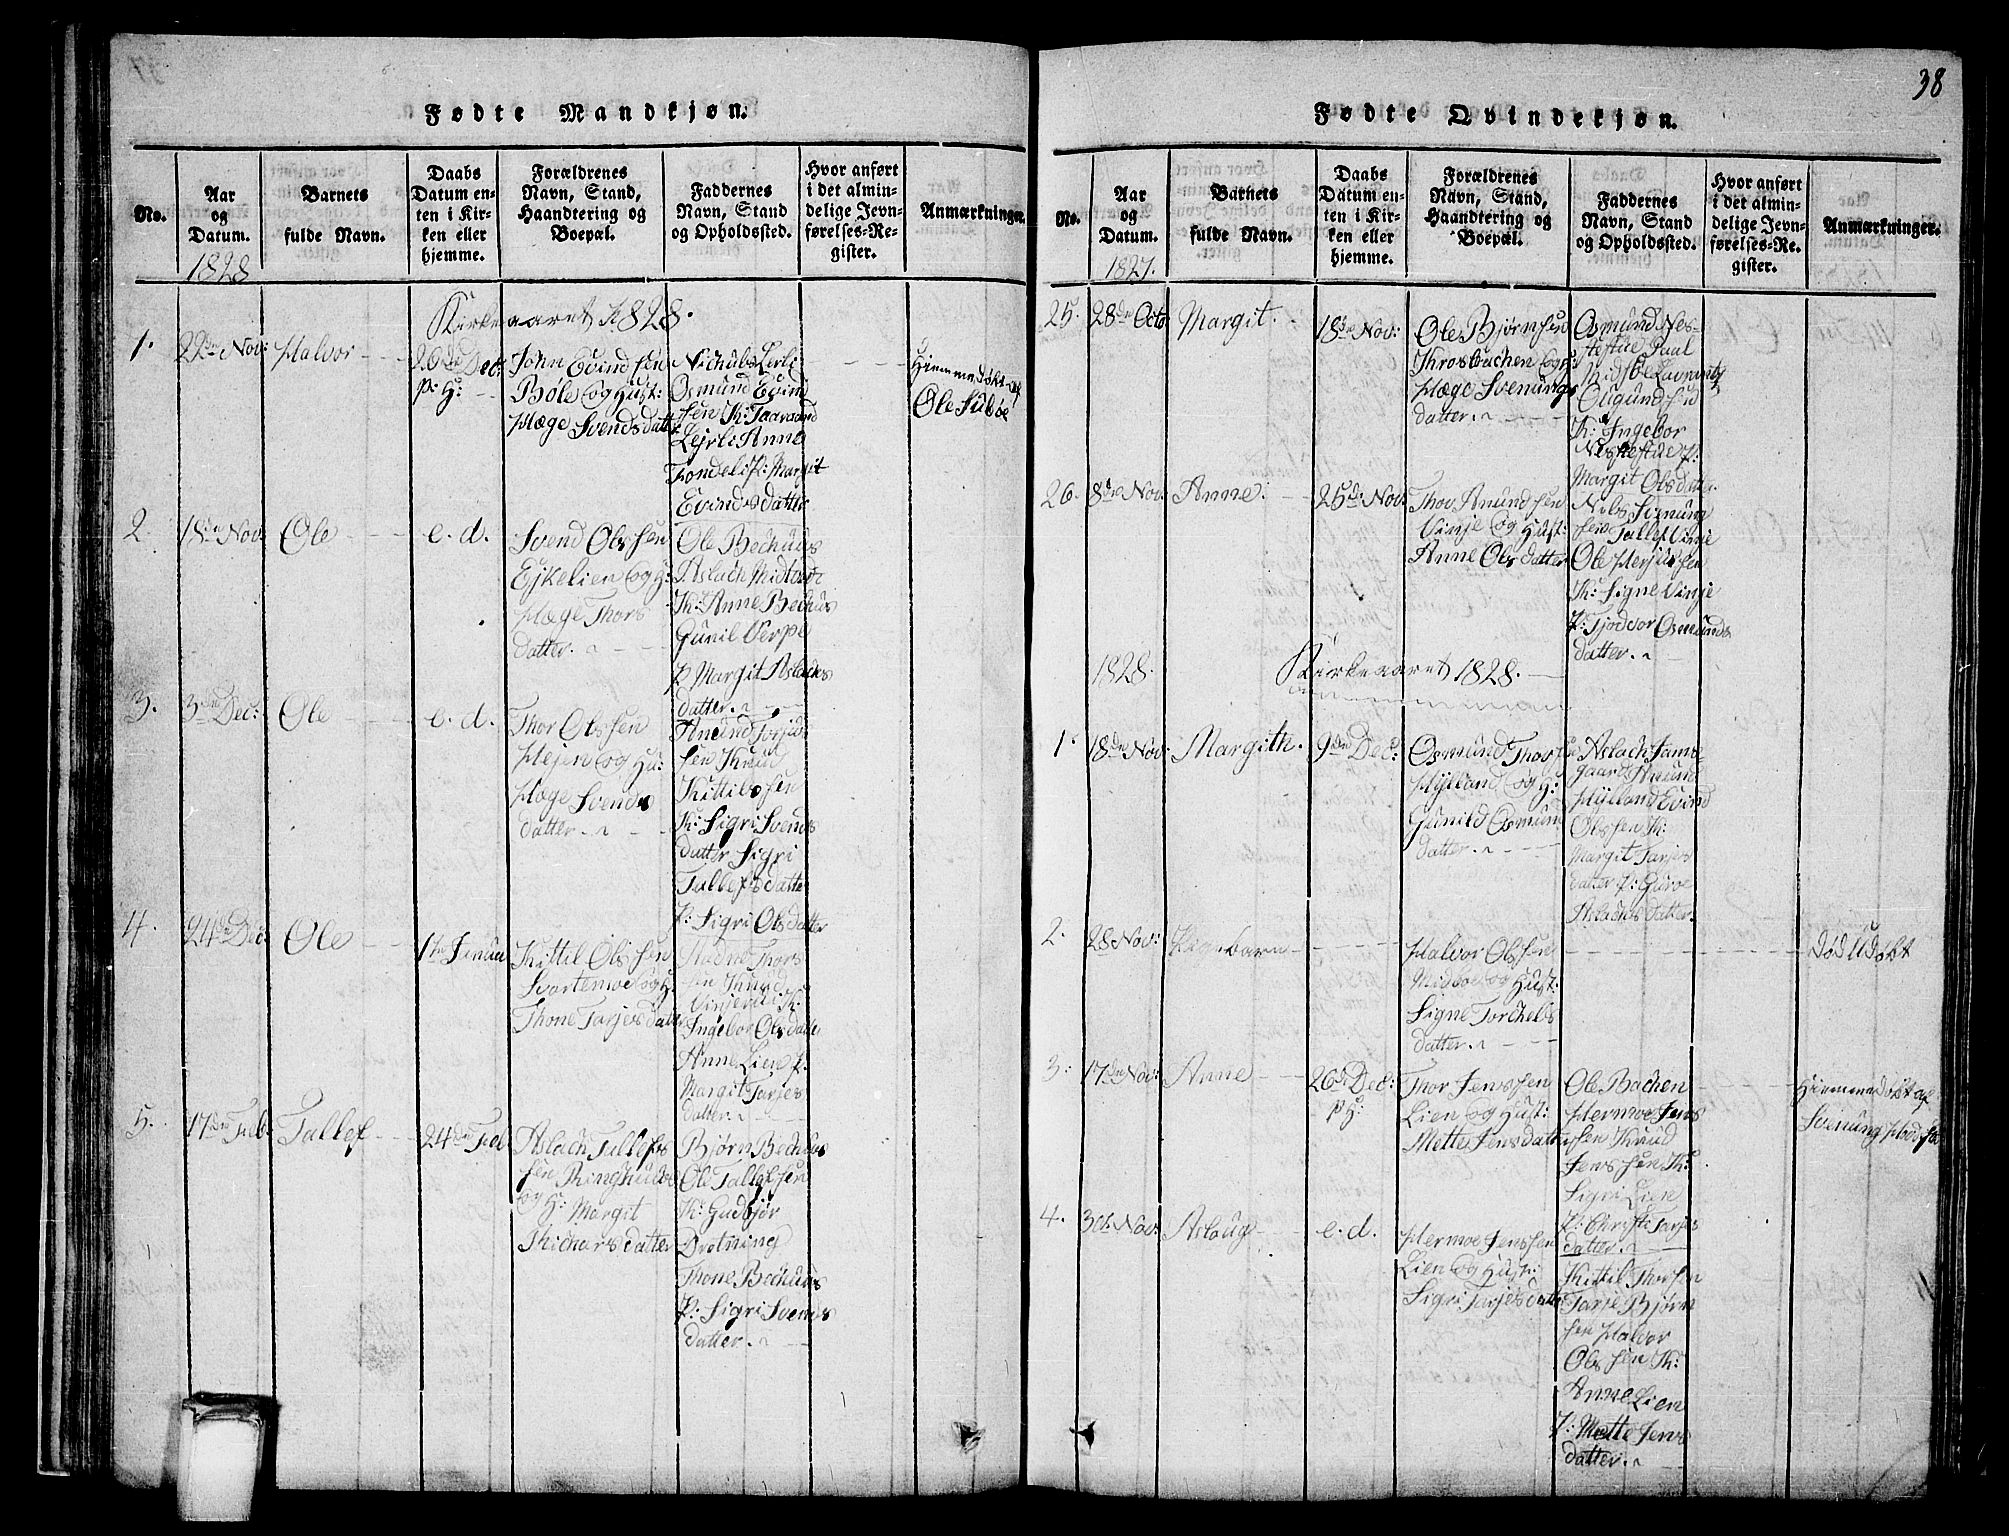 38
Fødte Mandkjøn.
No.
Aar
og
Datum.
Barnets
fulde Navn.
Daabs
Datum en-
ten i Kir-
ken eller
hjemme.
Forældrenes
Navn, Stand,
Haandtering og
Boepæl.
Faddernes
Navn, Stand
og Opholdssted.
Hvor anført
i det almin-
delige Jevn-
førelses-Re-
gister.
Anmærkninger.
1828
Kirkeaaret 1828.
1.
22de Nov:
Halvor
26de Dec:
p. H:
John Evindsen
Bøle og Hust:
Hæge Svendsdatter
Osmund Evind
sen K: Taarand
Lejrli Anne
P: Margit
Evindsdatter
Hiemmedøbt af
Ole Subøe
2.
18de Nov:
Ole
e. d.
Svend Olssen
Ejkelien og H:
Hæge Thors
datter.
Ole Bechuus
Aslach Midtbøe
K: Anne Bechus
Gunil Verpe
P Margit Aslachs
datter.
3.
3de Dec:
Ole
e. d.
Thor Olssen
Højen og Hu:
Hæge Svends
datter
Amund Torjus
sen Knud
Kittilssen
K: Sigri Svends
datter Sigri
Tallefsdatter
P: Sigri Olsdatter
4.
24de Dec:
Ole
1te Januar
Kittil Olssen
Svartemoe og H.
Thone Tarjesdatter
Thors
sen Knud
K:
Ingebor Olsdatter
Anne Lien P.
Margit Tarjes
datter.
5.
17de Feb:
Tallef
24de Feb
Aslach Tallefs
sen Ringhuus
og H: Margit
Richarsdatter
Bjørn Bechus
Ole Tallefsen
K: Gudbjør
Drotning
Thone Bechuus
P: Sigri Svends
datter.
Fødte Qvindekjøn.
No.
Aar
og
Datum.
Barnets
fulde Navn.
Daabs
Datum en-
ten i Kir-
ken eller
hjemme.
Forældrenes
Navn, Stand,
Haandtering og
Boepæl.
Faddernes
Navn, Stand
og Opholdssted.
Hvor anført
i det almin-
delige Jevn-
førelses-Re-
gister.
Anmærkninger.
1827.
25.
28de Octo
Margit.
18de Nov:
Ole Bjørnsen
Throsbachen og H:
Hæge Svenungs
datter.
Osmund Nes-
Paal
K: Ingebor
P:
Margit Olsdatter
26.
8de Nov:
Anne.
25de Nov:
Thov Amundsen
Vinje og Hust:
Anne Olsdatter
Nils Svenung
sen Tallef Vinje
Ole Herjussen
K: Signe Vinje
P: Tjodvor Osmunds
datter.
1828.
Kirkeaaret 1828.
1.
18de Nov:
Margith.
9de Dec:
Osmund Thorsen
Hylland og H:
Gunild Osmun
datter.
Aslach Jams-
gaard Amund
Hylland Evind
Olssen K:
Margit Tarjes
datter P: Guroe
Aslachsdatter.
2.
28 Nov:
Halvor Olssen
Midbøe og Hust:
Signe Torchels
datter.
Død Udøbt
3.
17de Nov:
Anne
26de Dec:
p H:
Thor Jenssen
Lien og Hust:
Mette Jensdatter
Ole Bachen
Hermoe Jens
sen Knud
Jenssen K:
Sigri Lien
P: Christi Tarjes
datter.
Hiemmedøbt af
Svenung
4.
30te Nov:
Aslaug
e. d.
Hermoe Jenssen
Lien og Hust:
Sigri Tarjesdatter
Kittil Thorsen
Tarje Bjørn
sen Halvor
Olssen K:
Anne Lien
P: Mette Jens
datter.